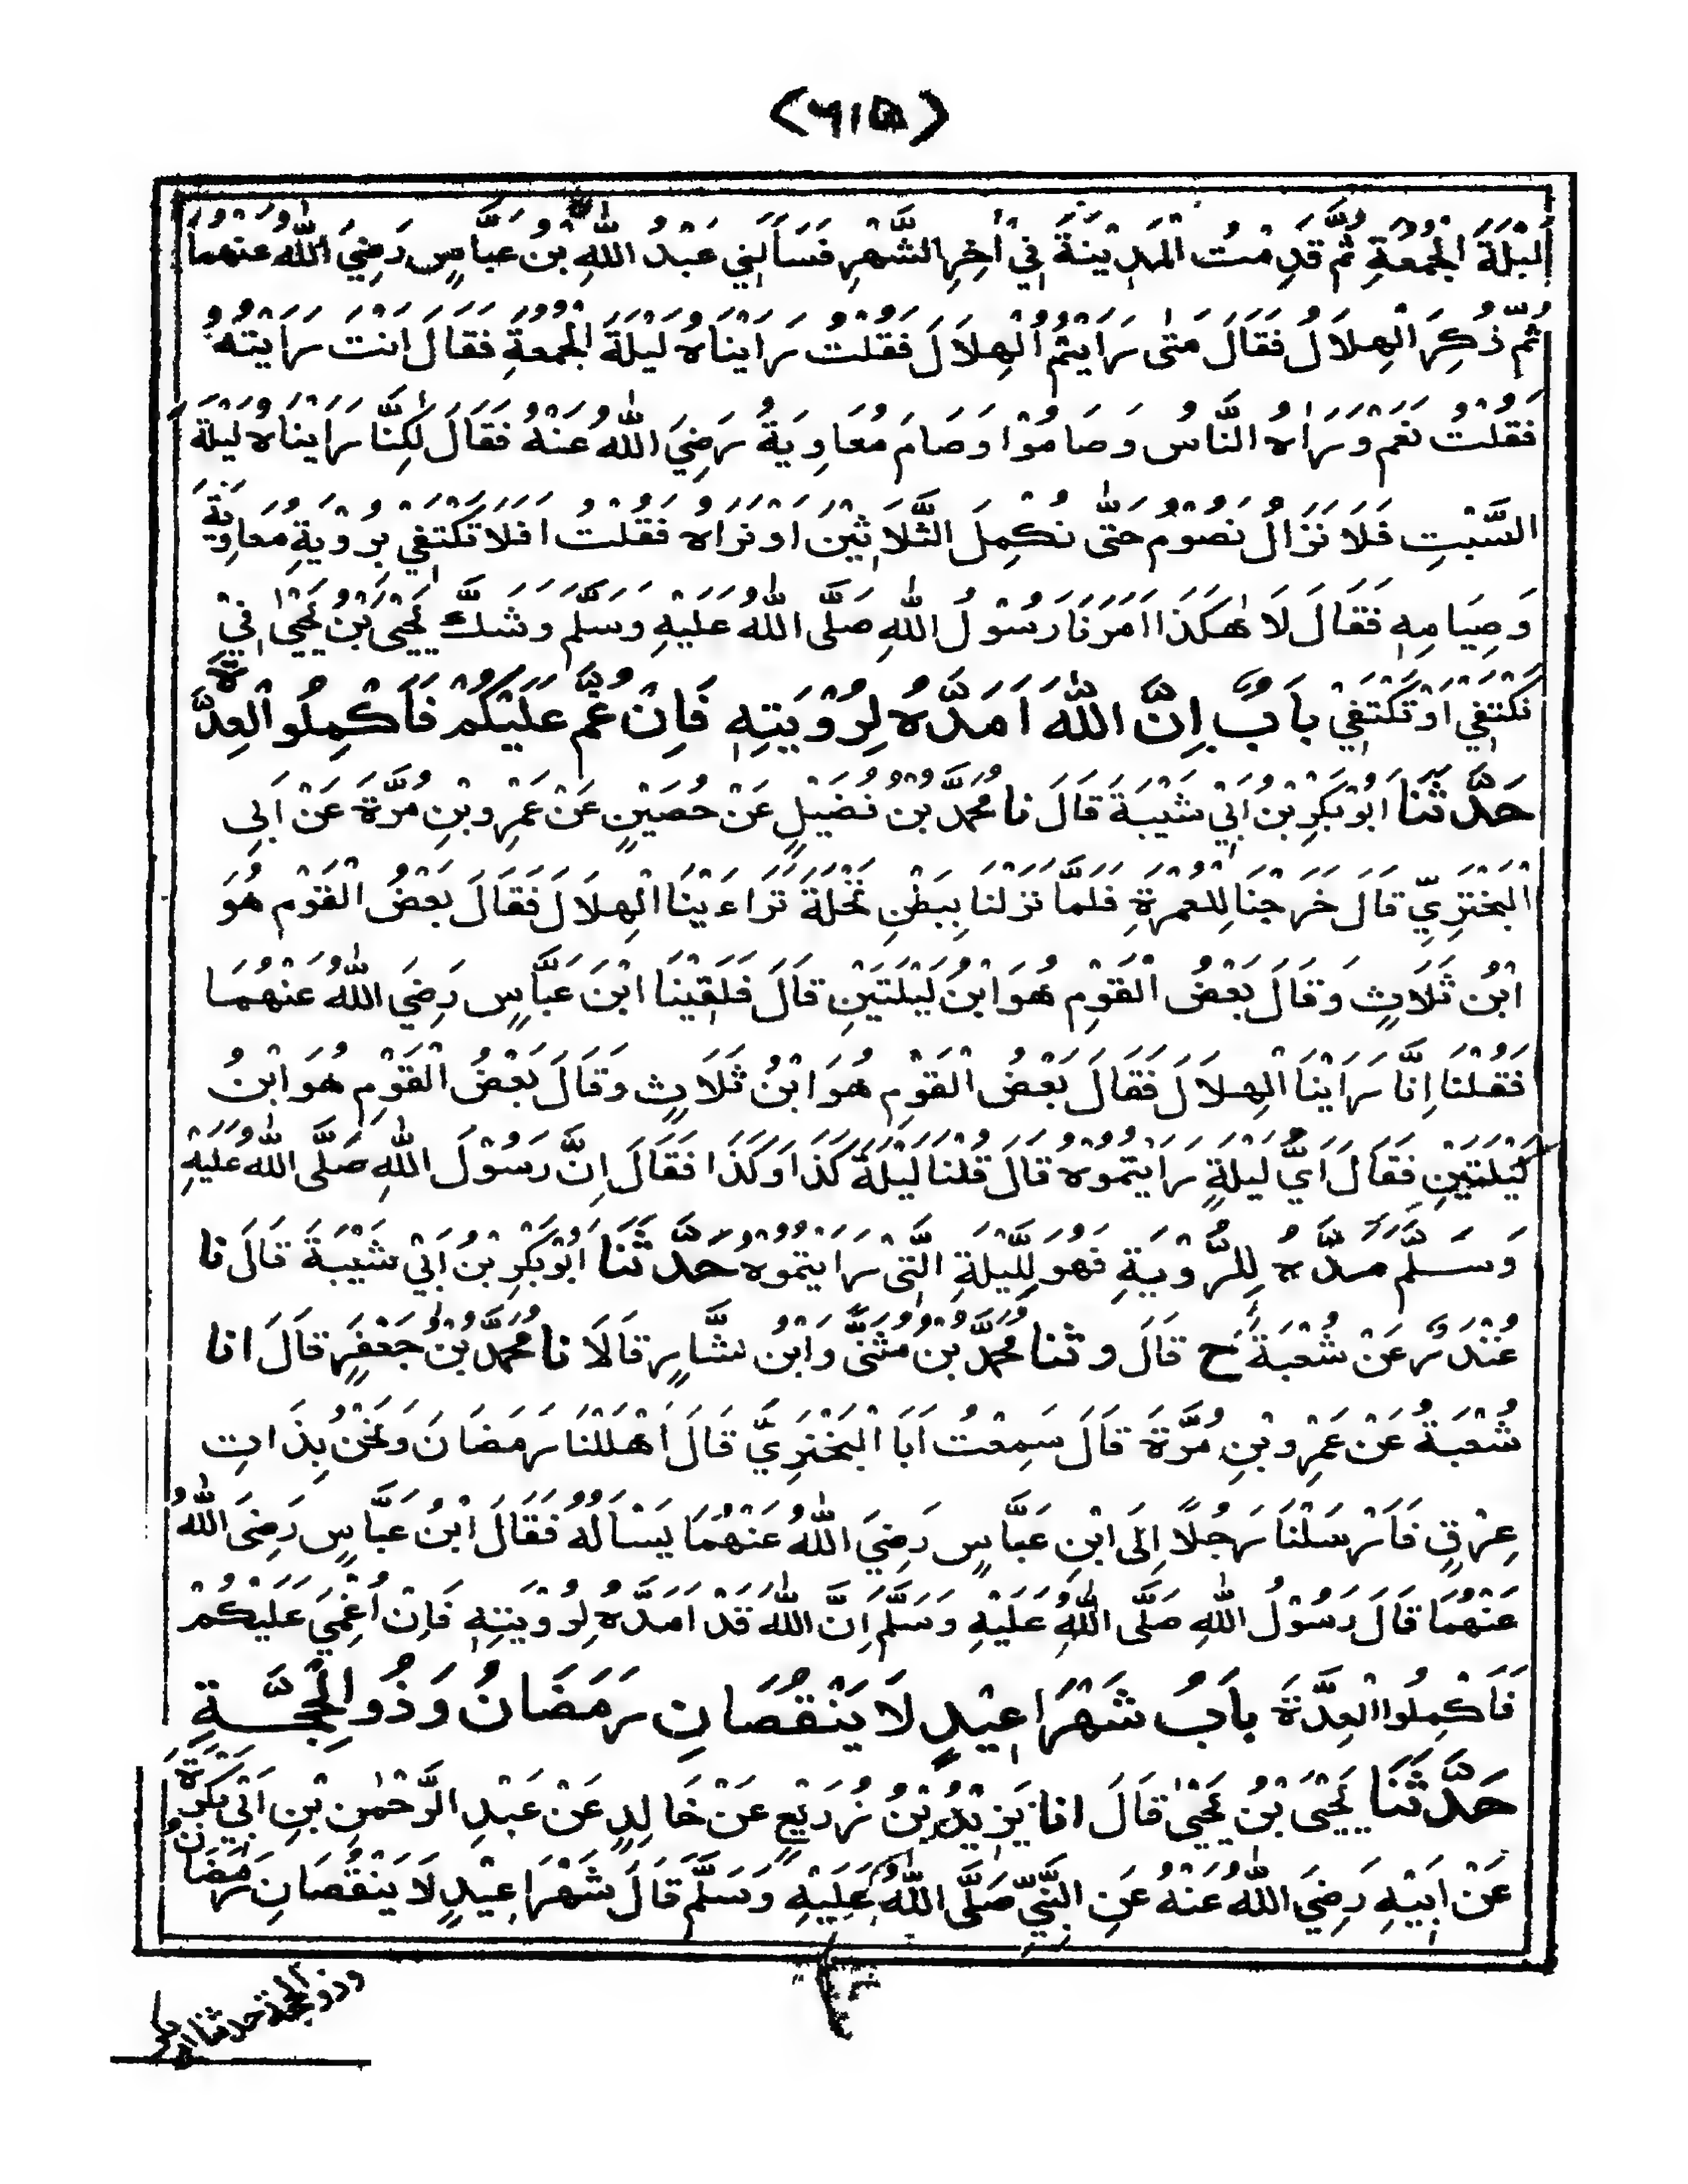 (٦١۵)
لَيْلَةَ الْجُمُعَةِ ثُمَّ قَدِمْتُ الْمَدِيْنَةَ فِيْ اٰخِرِ الشَّهْرِ فَسَأَلَنِي عَبْدُ اللّٰهِ بْنُ عَبَّاسٍ رَضِيَ اللّٰهُ عَنْهُمَا
ثُمَّ ذُكِرَ الْهِلَالُ فَقَالَ مَتٰى رَاَيْتُمُ الْهِلَالَ فَقُلْتُ رَاَيْنَاهُ لَيْلَةَ الْجُمُعَةِ فَقَالَ اَنْتَ رَاَيْتَهُ
فَقُلْتُ نَعَمْ وَرَاٰهُ النَّاسُ وَصَامُوْا وَصَامَ مُعَاوِيَةُ رَضِيَ اللّٰهُ عَنْهُ فَقَالَ لٰكِنَّا رَاَيْنَاهُ لَيْلَةَ
السَّبْتِ فَلَا نَزَالُ نَصُوْمُ حَتّٰى نُكْمِلَ الثَّلَاثِيْنَ اَوْ نَرَاهُ فَقُلْتُ اَفَلَا تَكْتَفِيْ بِرُوْيَةِ مُعَاوِيَةَ
وَصِيَامِهٖ فَقَالَ لَا هٰكَذَا اَمَرَنَا رَسُوْلُ اللّٰهِ صَلَّى اللّٰهُ عَلَيْهِ وَسَلَّمَ وَشَكَّ يَحْيَى بْنُ يَحْيٰى فِيْ
نَكْتَفِيْ اَوْ تَكْتَفِيْ بَابٌ اِنَّ اللّٰهَ اَمَدَّهُ لِرُوْيَتِهٖ فَاِنْ غُمَّ عَلَيْكُمْ فَاَكْمِلُوا الْعِدَّةَ
حَدَّثَنَا اَبُوْ بَكْرِ بْنُ اَبِيْ شَيْبَةَ قَالَ نا مُحَمَّدُ بْنُ فُضَيْلٍ عَنْ حُصَيْنٍ عَنْ عَمْرِو بْنِ مُرَّةَ عَنْ اَبِي
الْبَخْتَرِيِّ قَالَ خَرَجْنَا لِلْعُمْرَةِ فَلَمَّا نَزَلْنَا بِبَطْنِ نَخْلَةَ تَرَاءَيْنَا الْهِلَالَ فَقَالَ بَعْضُ الْقَوْمِ هُوَ
ابْنُ ثَلَاثٍ وَقَالَ بَعْضُ الْقَوْمِ هُوَ ابْنُ لَيْلَتَيْنِ قَالَ فَلَقِيْنَا ابْنَ عَبَّاسٍ رَضِيَ اللّٰهُ عَنْهُمَا
فَقُلْنَا اِنَّا رَاَيْنَا الْهِلَالَ فَقَالَ بَعْضُ الْقَوْمِ هُوَ ابْنُ ثَلَاثٍ وَقَالَ بَعْضُ الْقَوْمِ هُوَ ابْنُ
لَيْلَتَيْنِ فَقَالَ اَيَّ لَيْلَةٍ رَاَيْتُمُوْهُ قَالَ قُلْنَا لَيْلَةَ كَذَا وَكَذَا فَقَالَ اِنَّ رَسُوْلَ اللّٰهِ صَلَّى اللّٰهُ عَلَيْهِ
وَسَلَّمَ مَدَّهُ لِلرُّوْيَةِ فَهُوَ لِلَّيْلَةِ الَّتِيْ رَاَيْتُمُوْهُ حَدَّثَنَا اَبُوْ بَكْرِ بْنُ اَبِيْ شَيْبَةَ قَالَ نا
غُنْدَرٌ عَنْ شُعْبَةَ ح قَالَ وثنا مُحَمَّدُ بْنُ مُثَنّٰى وَابْنُ بَشَّارٍ قَالَا نا مُحَمَّدُ بْنُ جَعْفَرٍ قَالَ انا
شُعْبَةُ عَنْ عَمْرِو بْنِ مُرَّةَ قَالَ سَمِعْتُ اَبَا الْبَخْتَرِيِّ قَالَ اَهْلَلْنَا رَمَضَانَ وَنَحْنُ بِذَاتِ
عِرْقٍ فَاَرْسَلْنَا رَجُلًا اِلَى ابْنِ عَبَّاسٍ رَضِيَ اللّٰهُ عَنْهُمَا يَسْاَلُهُ فَقَالَ ابْنُ عَبَّاسٍ رَضِيَ اللّٰهُ
عَنْهُمَا قَالَ رَسُوْلُ اللّٰهِ صَلَّى اللّٰهُ عَلَيْهِ وَسَلَّمَ اِنَّ اللّٰهَ قَدْ اَمَدَّهُ لِرُوْيَتِهٖ فَاِنْ اُغْمِيَ عَلَيْكُمْ
فَاَكْمِلُوا الْعِدَّةَ بَابُ شَهْرَا عِيْدٍ لَا يَنْقُصَانِ رَمَضَانُ وَذُو الْحِجَّةِ
حَدَّثَنَا يَحْيَى بْنُ يَحْيٰى قَالَ انا يَزِيْدُ بْنُ زُرَيْعٍ عَنْ خَالِدٍ عَنْ عَبْدِ الرَّحْمٰنِ بْنِ اَبِيْ بَكْرَةَ
عَنْ اَبِيْهِ رَضِيَ اللّٰهُ عَنْهُ عَنِ النَّبِيِّ صَلَّى اللّٰهُ عَلَيْهِ وَسَلَّمَ قَالَ شَهْرَا عِيْدٍ لَا يَنْقُصَانِ رَمَضَانُ
وذو الحجة حدثنا ابو بكر